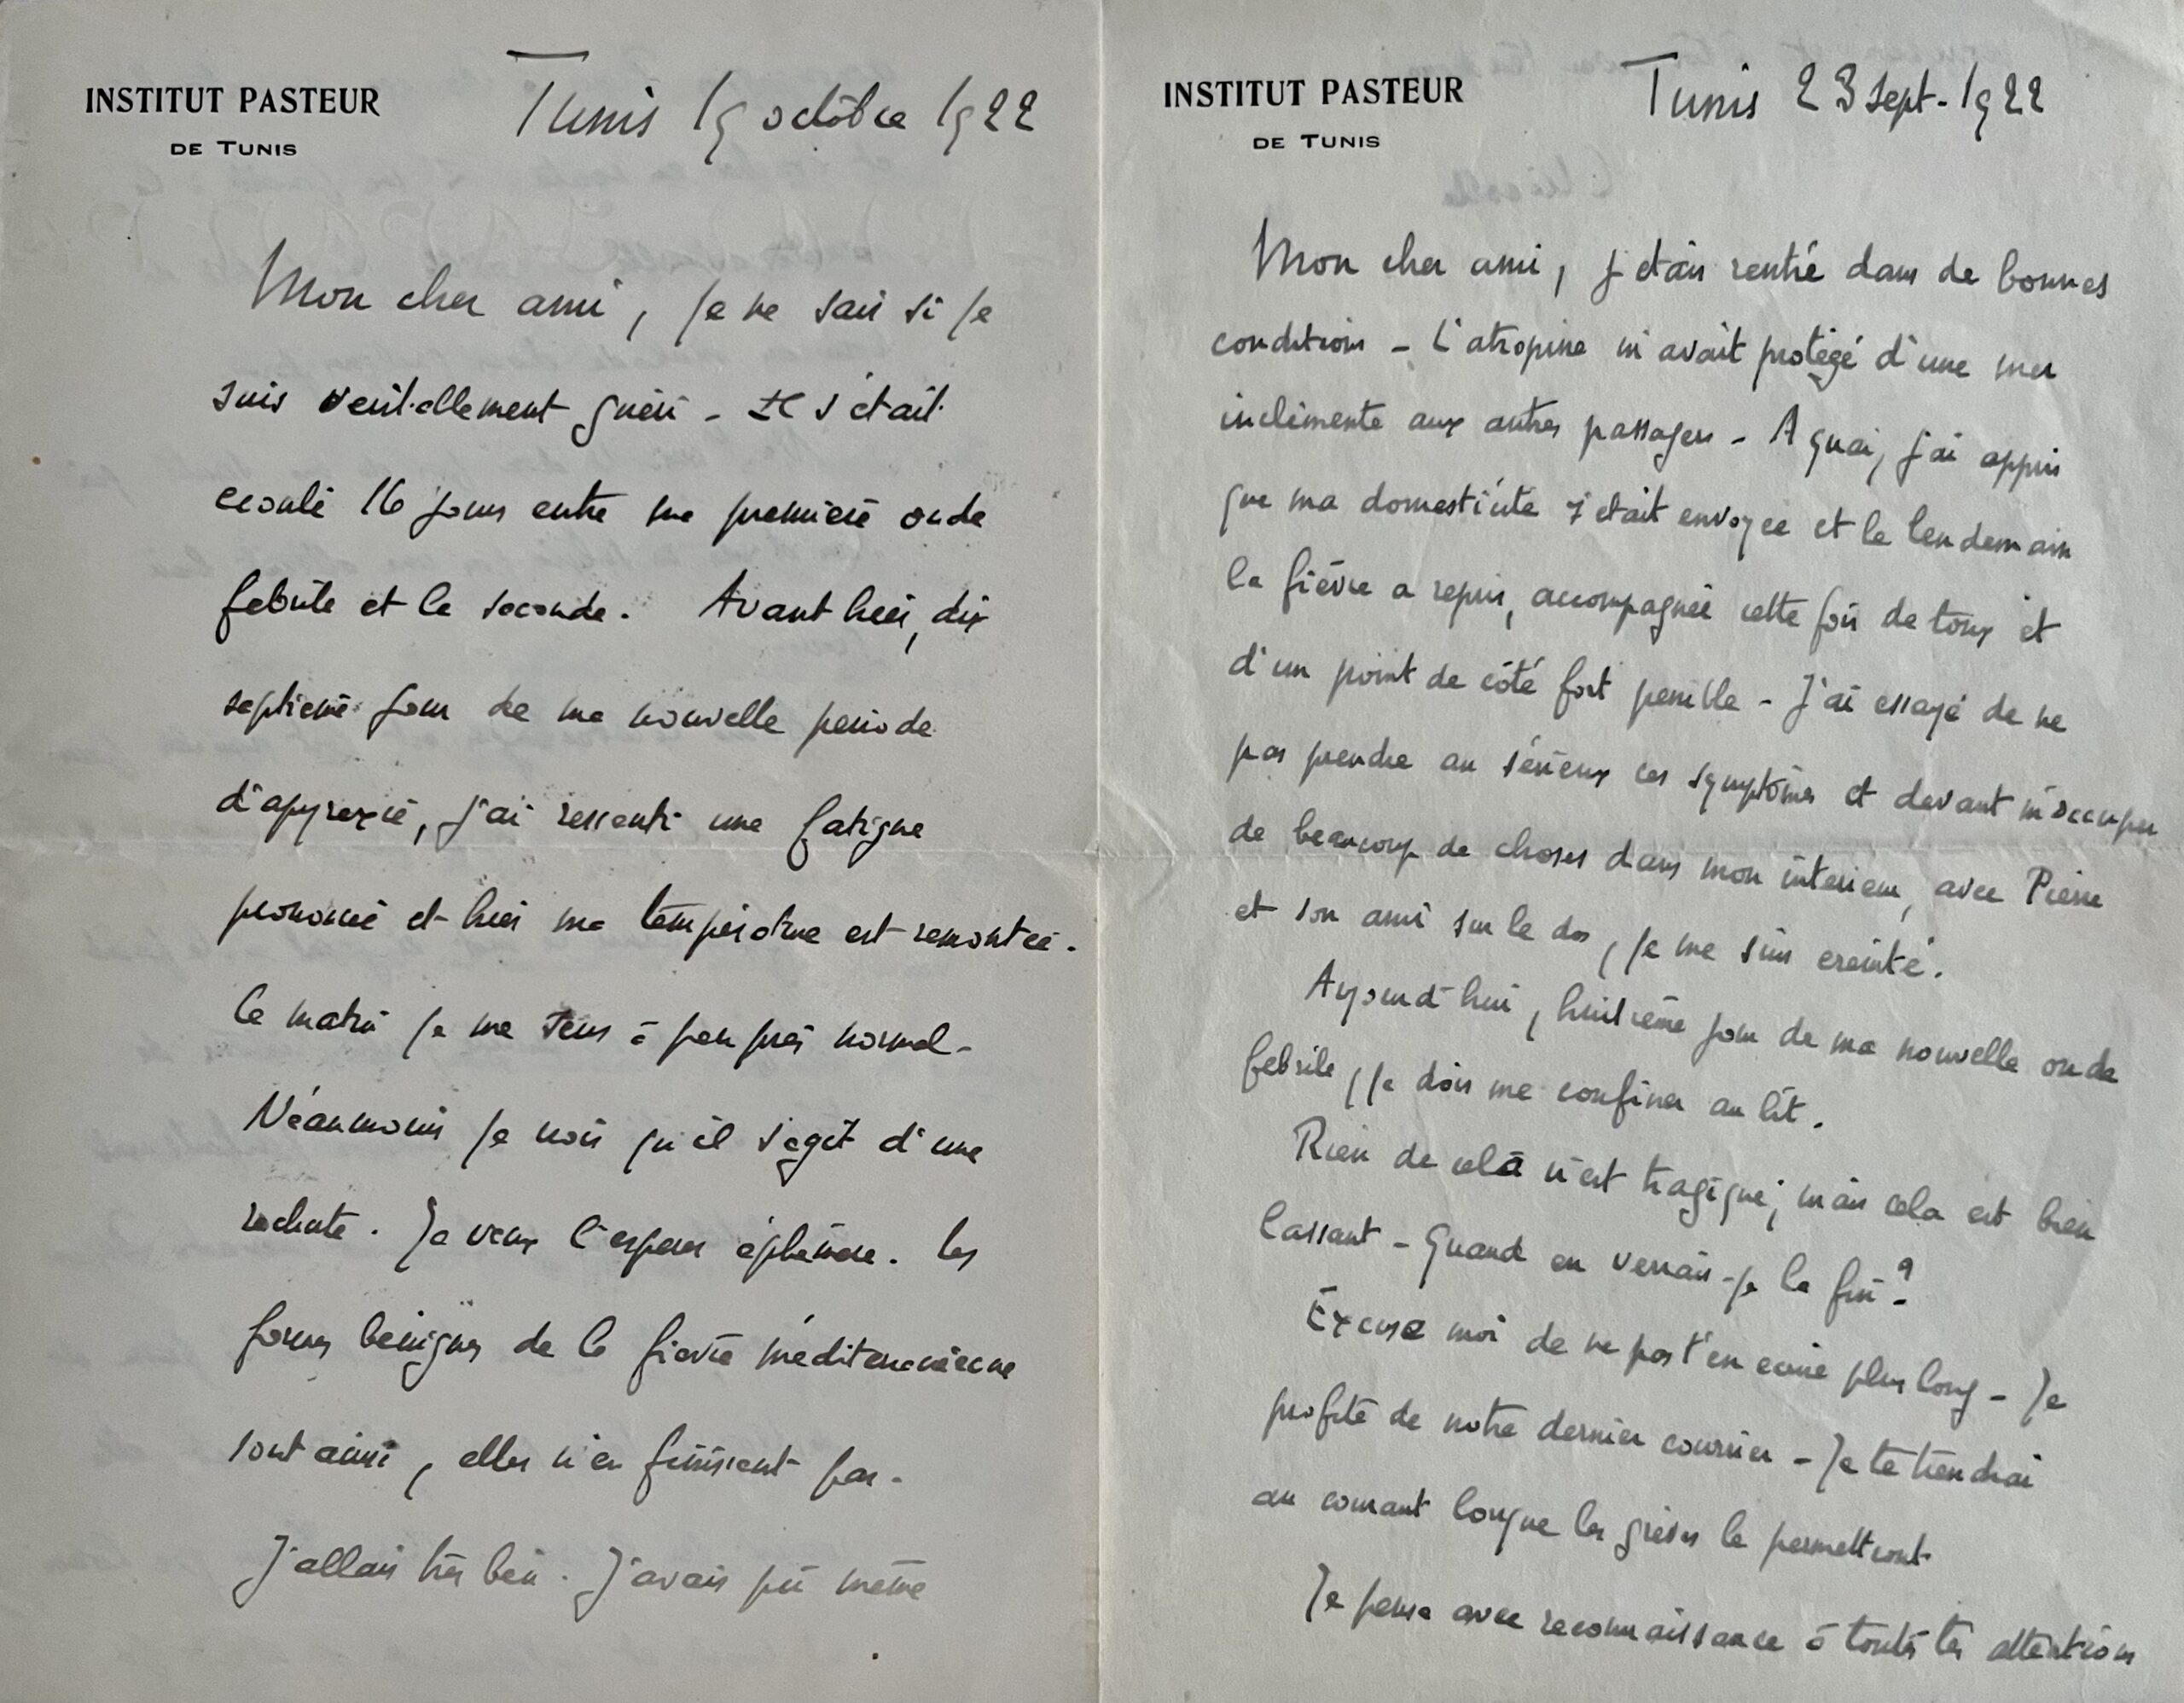 INSTITUT PASTEUR
DE TUNIS
Tunis 19 octobre 1922
Mon cher ami, je ne sais si je
suis veritablement guéri - Il s'était
ecoulé 16 jours entre ma première onde
febrile et la seconde. Avant hier, dix
septième jour de ma nouvelle periode
d'apyrexie, j'ai ressenti une fatigue
prononcée et hier ma température est remontée.
Ce matin je me sens à peu près normal -
Néanmoins je crois qu'il s'agit d'une
rechute. Je veux l'esperer éphémère. Les
formes benignes de la fièvre méditerranéenne
sont ainsi, elles n'en finissent pas -
J'allais très bien. J'avais pu même
INSTITUT PASTEUR
DE TUNIS
Tunis 23 sept - 1922
Mon cher ami, j'etais rentré dans de bonnes
conditions - L'atropine m'avait protégé d'une mer
inclémente aux autres passagers - A quai, j'ai appris
que ma domesticité s'etait envoyée et le lendemain
la fièvre a repris, accompagnée cette fois de toux et
d'un point de côté fort penible - J'ai essayé de ne
pas prendre au sérieux ces symptômes et devant m'occuper
de beaucoup de choses dans mon interieur, avec Pierre
et son ami sur le dos, je me suis ereinté.
Aujourd'hui, huitième jour de ma nouvelle onde
febrile, je dois me confiner au lit.
Rien de celà n'est tragique; mais cela est bien
lassant - Quand en verrais-je la fin?
Excuse moi de ne pas t'en ecrire plus long - Je
profite de notre dernier courrier - Je te tiendrai
au courant lorsque les grèves le permettront
Je pense avec reconnaissance à toutes tes attentions